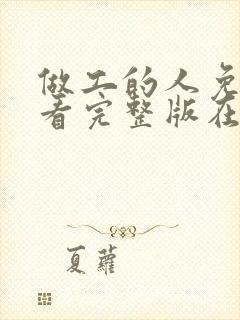 做工的人免
看完整版在
夏蘿